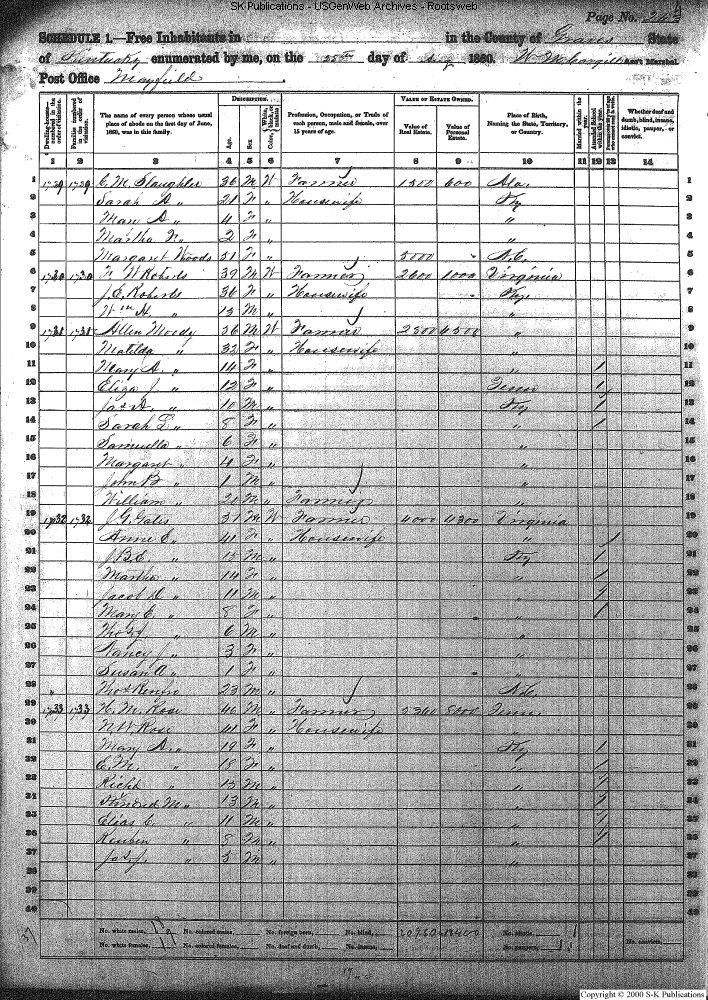 SK Publications - USGenWeb Archives - Rootsweb
Page No.
SCHEDULE 1.—Free Inhabitants in in the County of Graves State
of Kentucky enumerated by me, on the 25th day of 1860. Ass't Marshal.
Post Office Mayfield
Dwelling-houses numbered in the order of visitation.
Families numbered in the order of visitation.
The name of every person whose usual place of abode on the first day of June, 1860, was in this family.
DESCRIPTION.
Age.
Sex.
Color, White, black, or mulatto.
Profession, Occupation, or Trade of each person, male and female, over 15 years of age.
VALUE OF ESTATE OWNED.
Value of Real Estate.
Value of Personal Estate.
Place of Birth, Naming the State, Territory, or Country.
Married within the year.
Attended School within the year.
Whether deaf and dumb, blind, insane, idiotic, pauper, or convict.
1 2 3 4 5 6 7 8 9 10 11 12 13 14
1 1729 1729 C. M. Slaughter 36 M W Farmer 1500 600 Ala. 1
2 Sarah A " 21 F " Housewife Ky 2
3 Mary A " 4 F " " 3
4 Martha F. " 2 F " " 4
5 Margaret Woods 51 F " 5000 N.C. 5
6 1730 1730 W Roberts 39 M W Farmer 2600 1000 Virginia 6
7 J. E. Roberts 36 F " Housewife Ky. 7
8 Wm H. " 13 M " " 8
9 1731 1731 Allen Moody 36 M W Farmer 2500 " 9
10 Matilda " 32 F " Housewife " 10
11 Mary A. " 14 F " " 1 11
12 Eliza J. " 12 F " Tenn 1 12
13 Jas A. " 10 M " Ky 1 13
14 Sarah L " 8 F " " 1 14
15 Samuella " 6 F " " 15
16 Margaret " 4 F " " 16
17 John B " 1 M " " 17
18 William " 20 M " Farming " 18
19 1732 1732 J. G. Gates 51 M W Farmer 4000 4300 Virginia 19
20 Anne E. " 41 F " Housewife " / 20
21 J. B. C. " 15 M " Ky 1 21
22 Martha " 14 F " " 1 22
23 Jacob D " 11 M " " 1 23
24 Mary E. " 8 F " " 1 24
25 " 6 M " " 25
26 Nancy J. " 3 F " " 26
27 Susan A " 1 F " " 27
28 " Thos Renfro 23 M " N.C. 28
29 1733 1733 H. M. Rose 46 M " Farmer 8000 Tenn. 29
30 Rose 41 F " Housewife " 30
31 Mary A. " 19 F " Ky 1 31
32 E. M. " 18 F " " 1 32
33 Richd " 15 M " " 1 33
34 Kindred M " 13 M " " 1 34
35 Elias C. " 11 M " " 1 35
36 Reuben " 8 M " " 1 36
37 Jas. J. " 5 M " " 37
38 38
39 39
40 40
No. white males, 19 No. colored males, No. foreign born, No. blind, No. idiotic,
No. white females, No. colored females, No. deaf and dumb, No. insane, No. paupers, No. convicts,
Copyright © 2000 S-K Publications